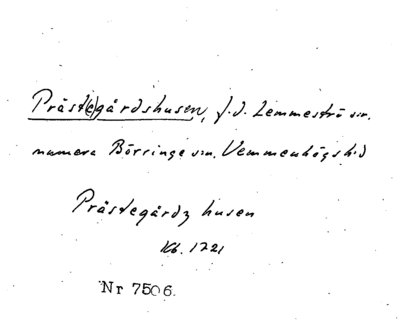 Präst(e)gårdshusen, f.d. Lemmeströ sn.
numera Börringe sn. Vemmenhögs hd
Prästegårdz husen
Kb. 1721
Nr 7506.